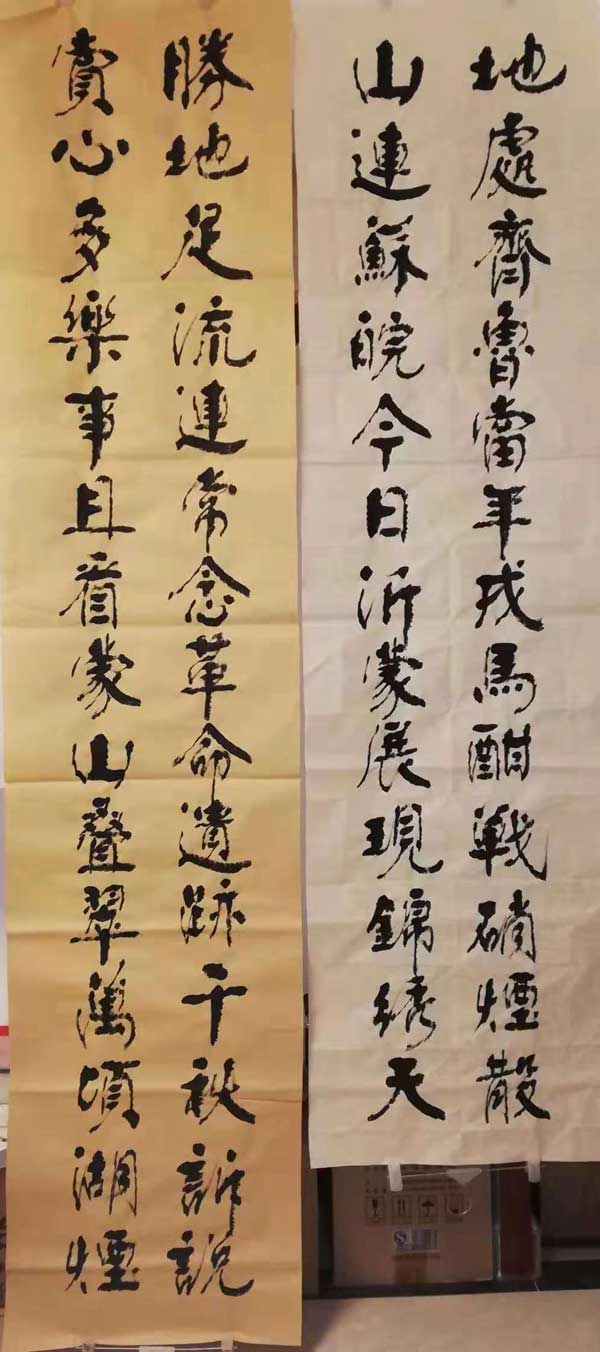 地處齊魯當年戎馬酣戰硝煙散
山連蘇皖今日沂蒙展現錦繡天
勝地足流連常念革命遺跡千秋訴說
賞心多樂事且看蒙山疊翠萬頃湖煙